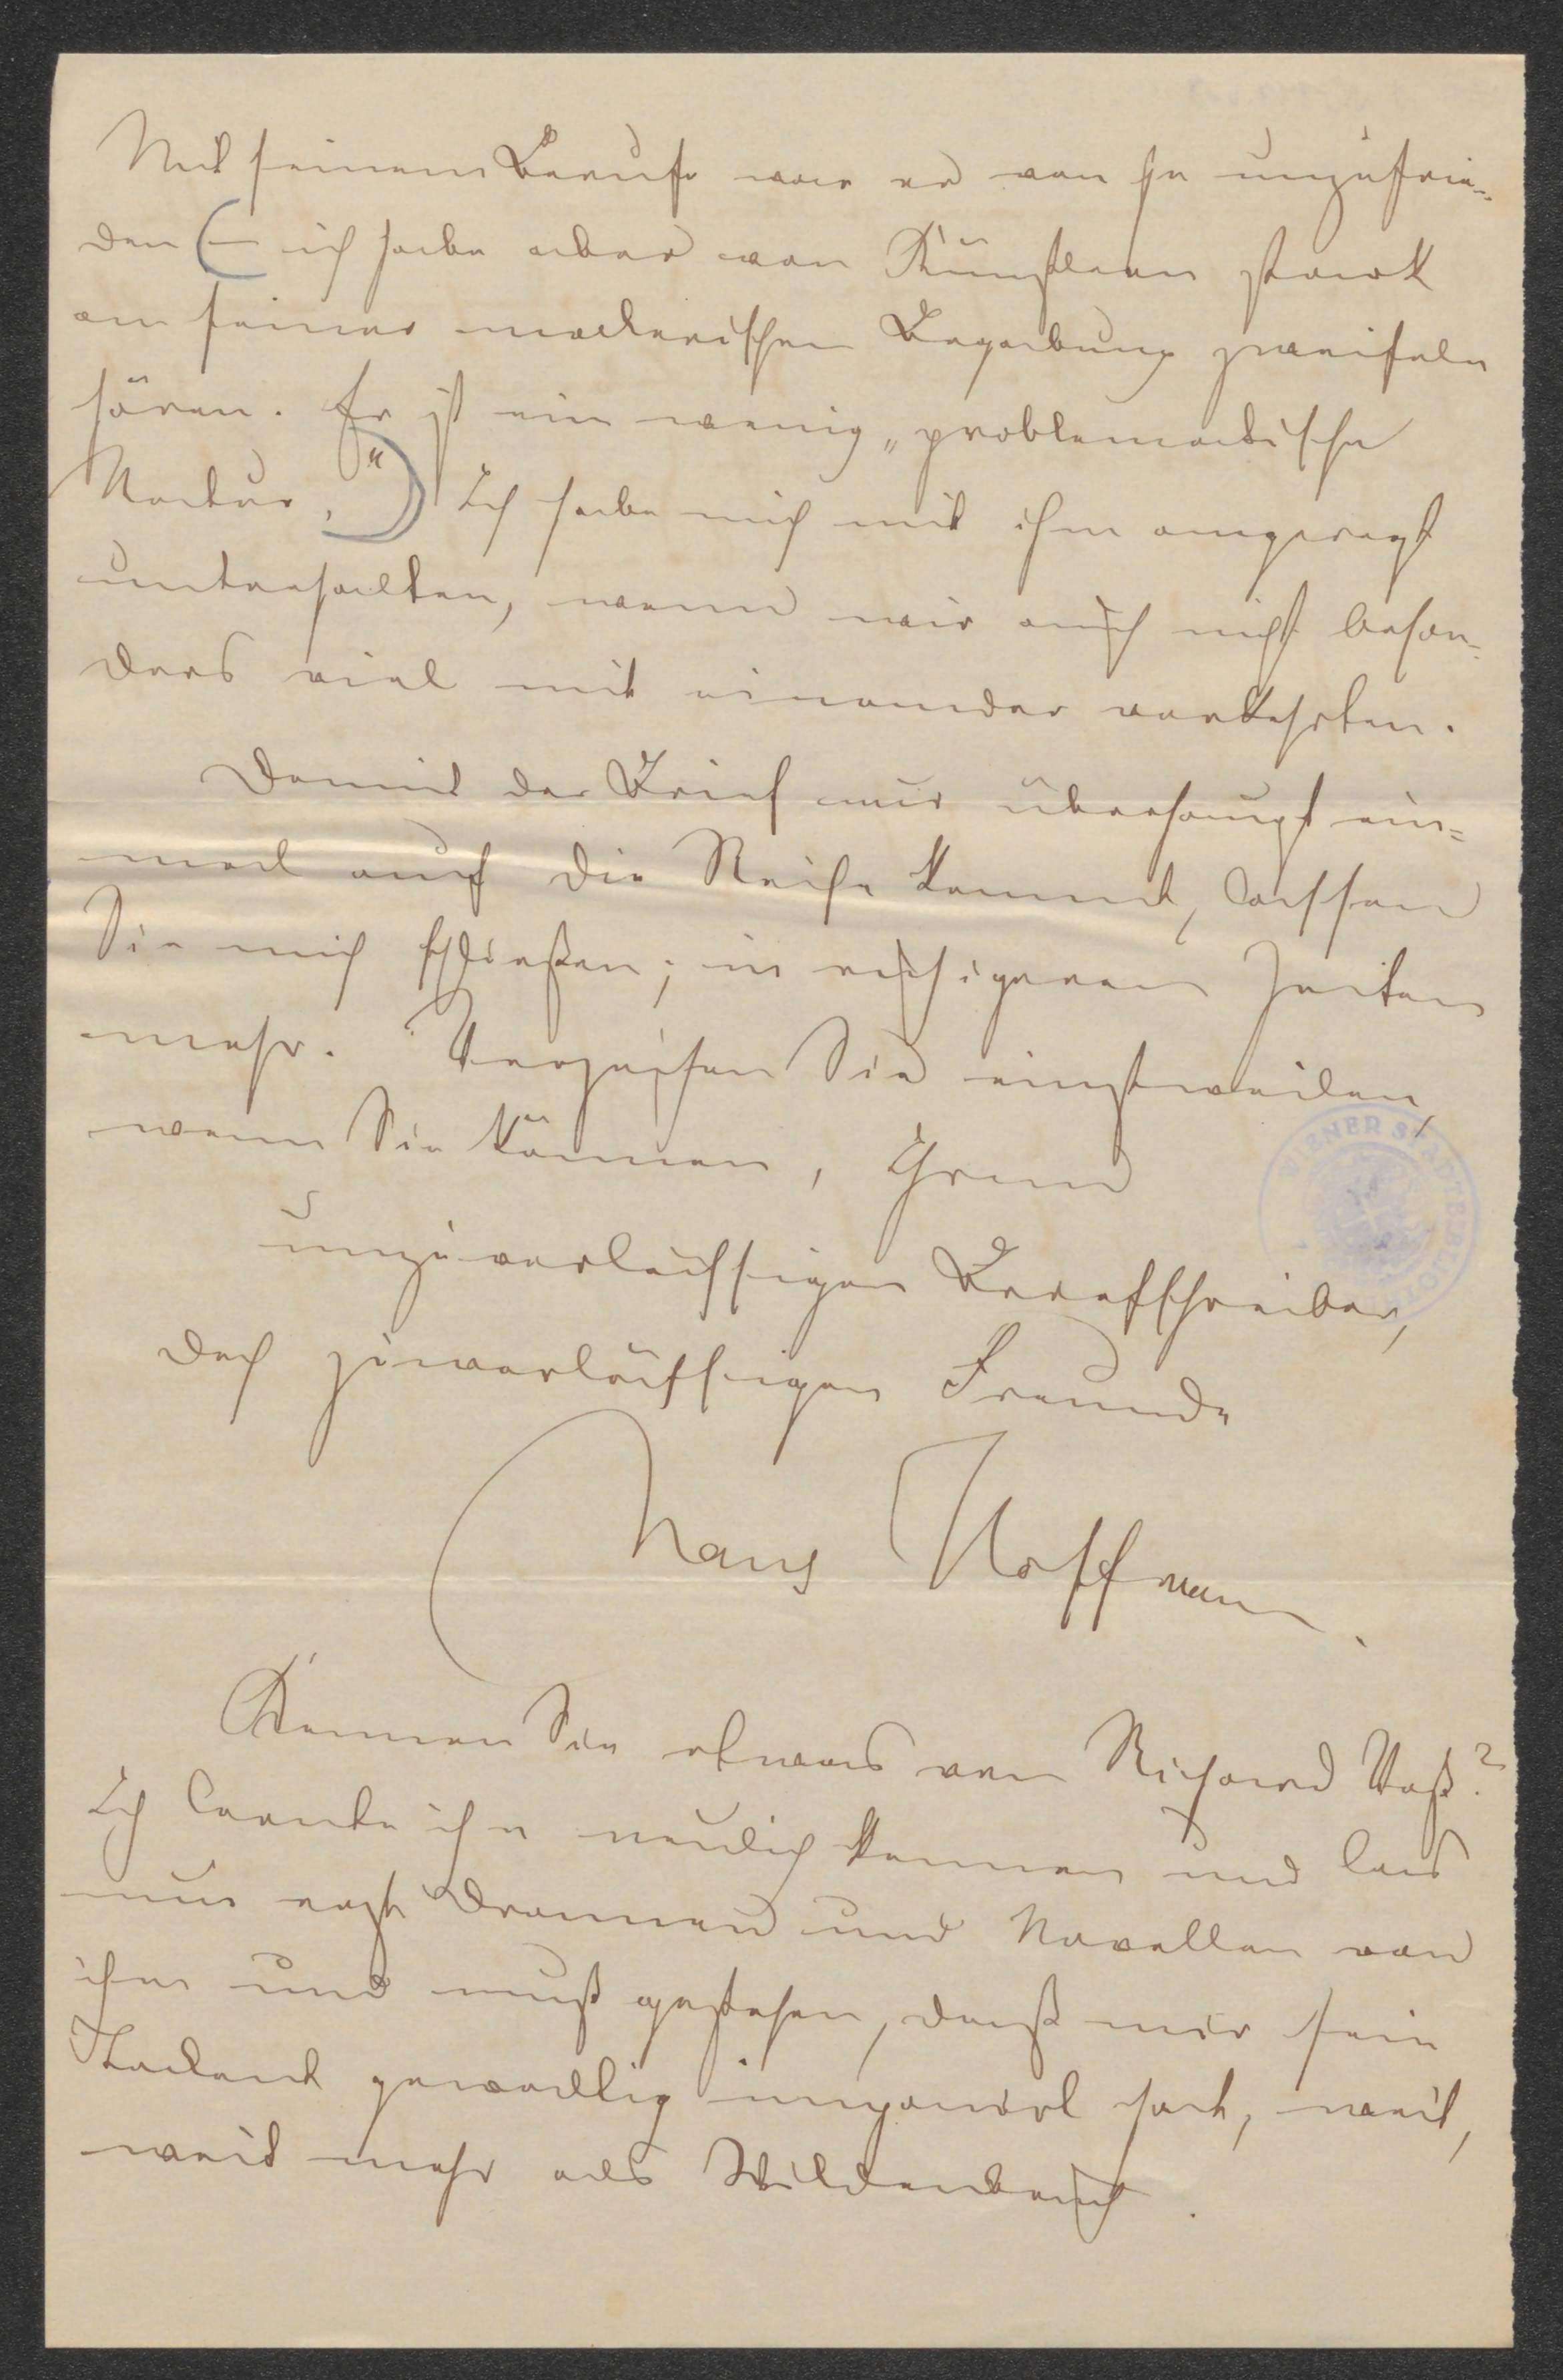 Mit seinem Berufe war er von je unzufrie-
den (– ich habe aber von Künstlern stark
an seiner malerischen Begabung zweifeln
hören. Er ist ein wenig „problematische
Natur.“) Ich habe mich mit ihm angeregt
unterhalten, wenn wir auch nicht beson-
ders viel mit einander verkehrten.
Damit der Brief nur überhaupt ein-
mal auf die Reise kommt, lassen
Sie mich schließen; in ruhigeren Zeiten
mehr. Verzeihen Sie einstweilen,
wenn Sie können, Ihrem
unzuverlässigen Briefschreiber,
doch zuverlässigen Freunde
Hans Hoffmann.
WIENER STADTBIBLIOTHEK
Kennen Sie etwas von Richard Voß?
Ich lernte ihn neulich kennen und las
nun erst Dramen und Novellen von
ihm und muß gestehen, daß mir sein
Talent gewaltig imponirt hat, weit,
weit mehr als Wildenbruch.